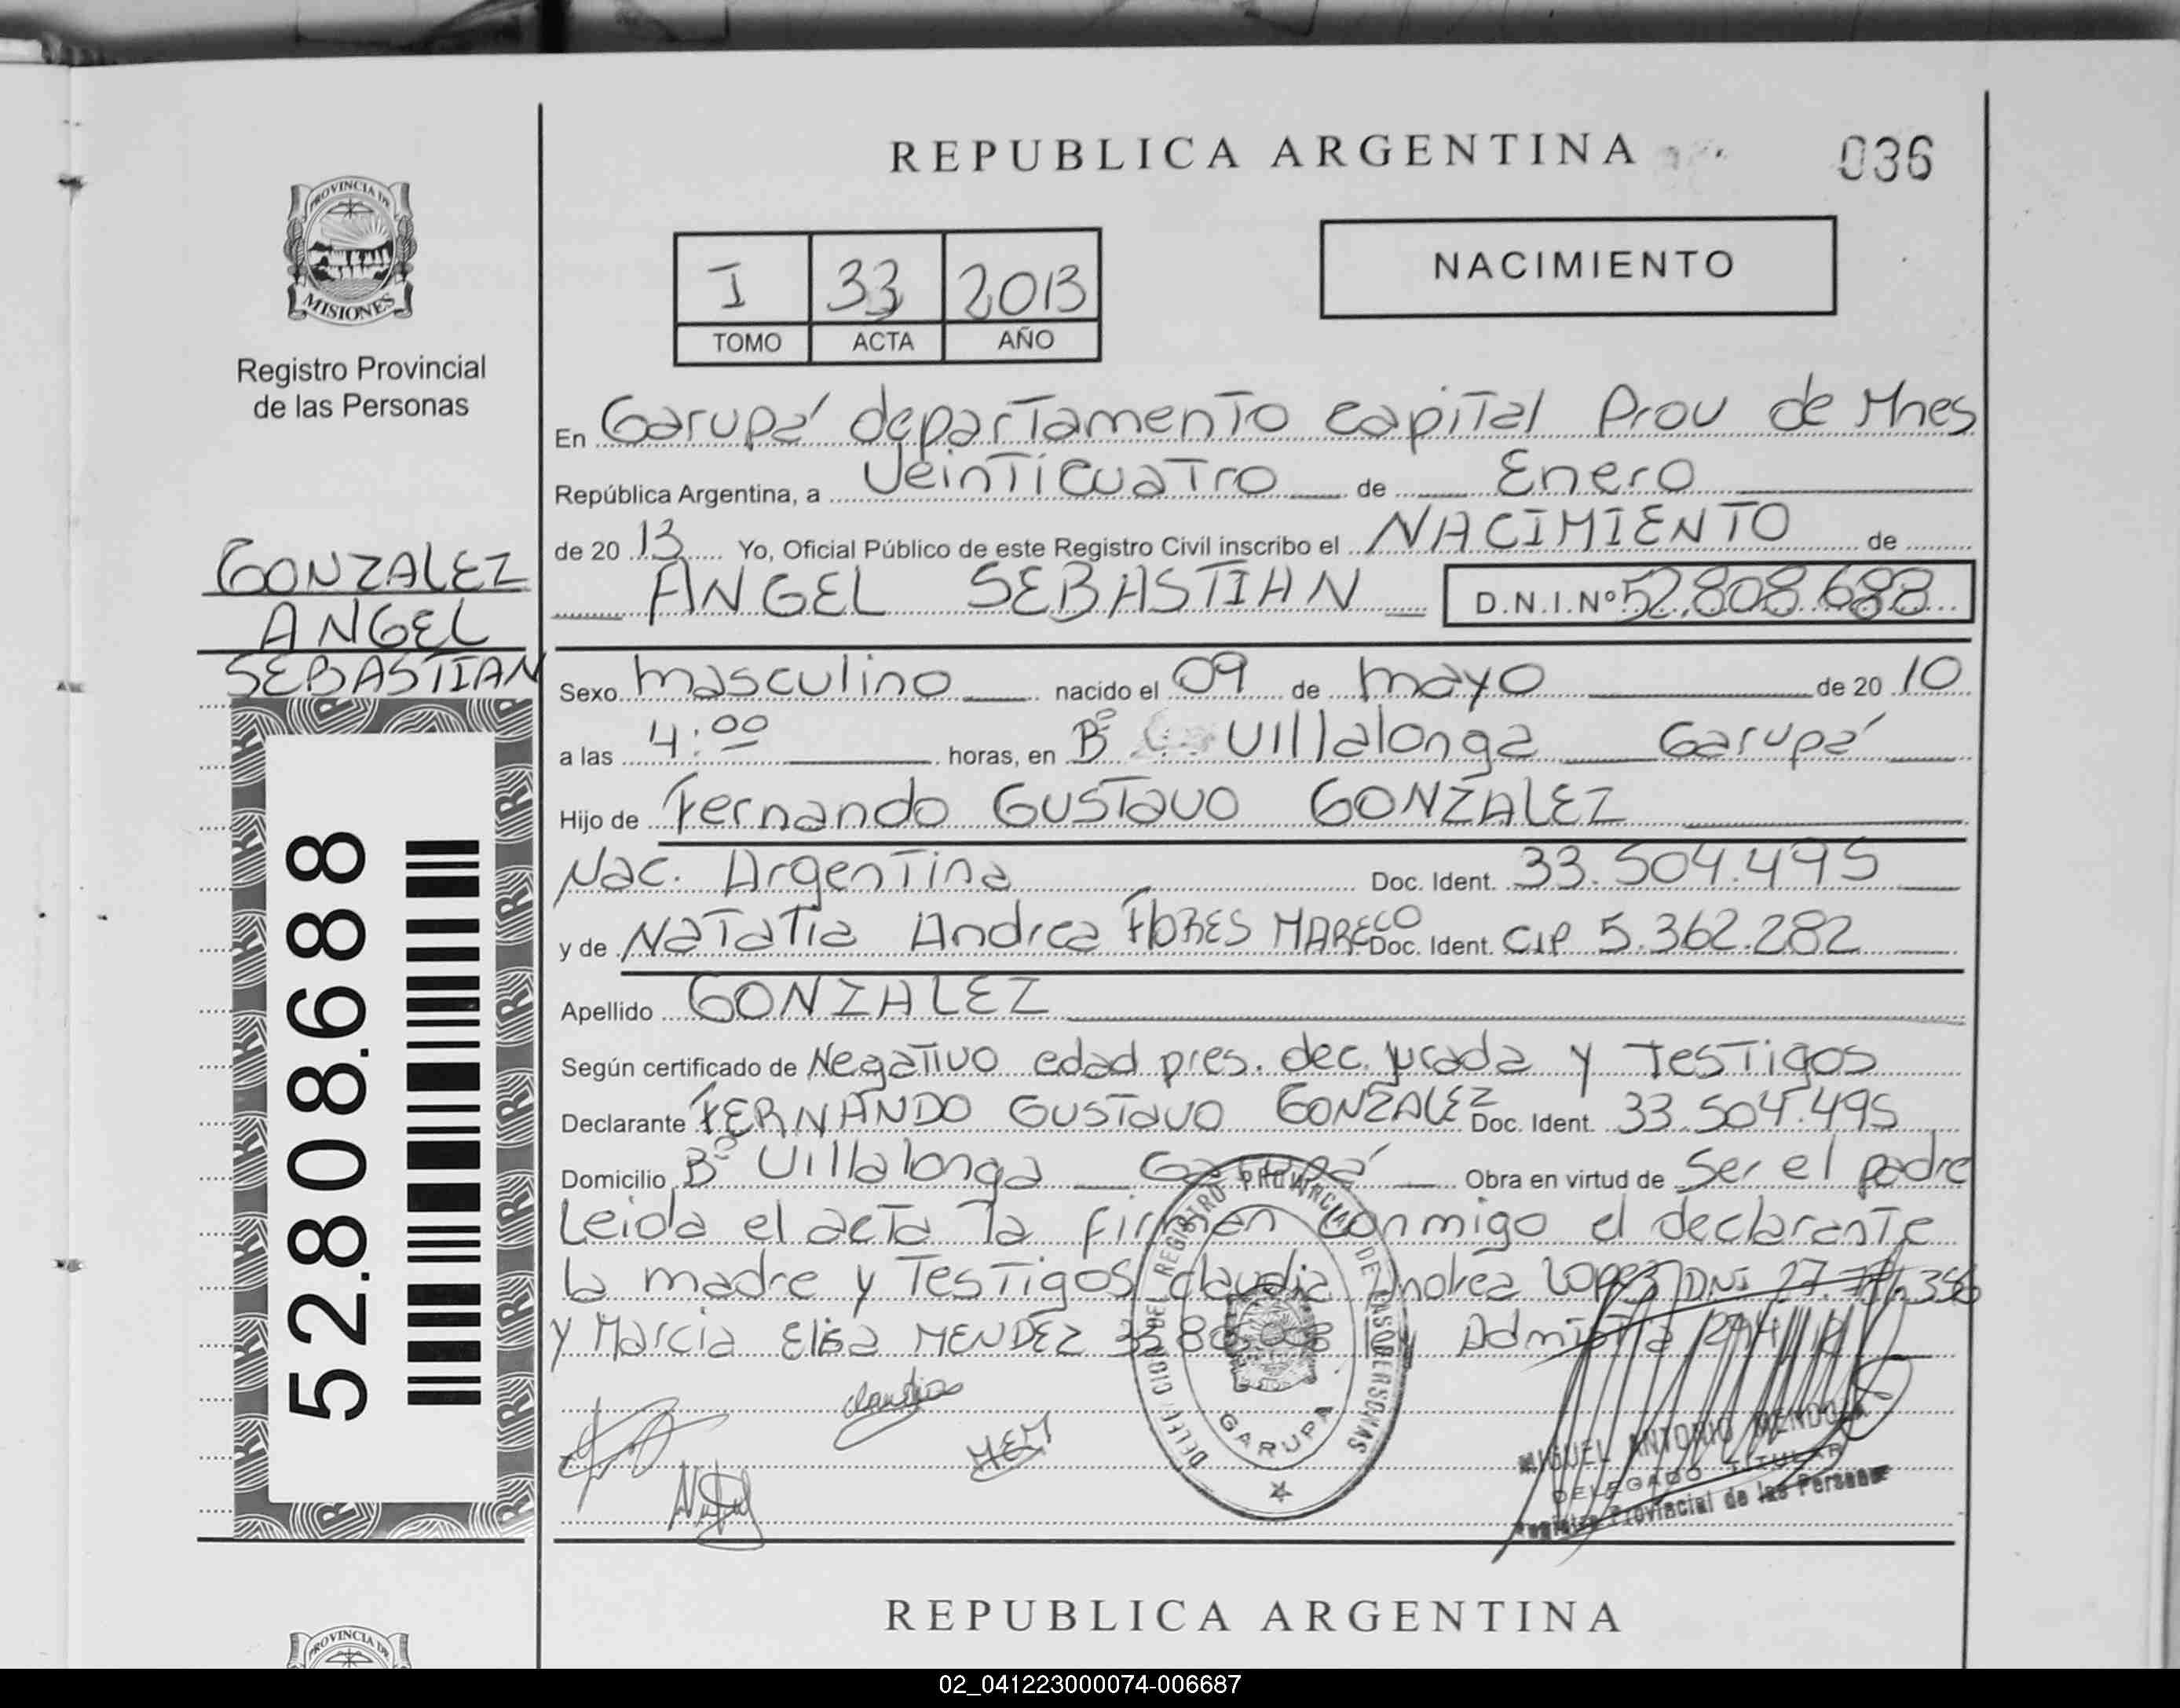 REPUBLICA ARGENTINA
036
PROVINCIA DE
MISIONES
Registro Provincial
de las Personas
I 33 2013
TOMO ACTA AÑO
NACIMIENTO
En Garupá departamento capital Prov de Mnes
República Argentina, a Veinticuatro de Enero
de 20 13 Yo, Oficial Público de este Registro Civil inscribo el NACIMIENTO de
ANGEL SEBASTIAN D.N.I.Nº 52.808.688
GONZALEZ
ANGEL
SEBASTIAN
52.808.688
Sexo masculino nacido el 09 de mayo de 20 10
a las 4:00 horas, en Bº Villalonga Garupá
Hijo de Fernando Gustavo GONZALEZ
Nac. Argentina Doc. Ident. 33.504.495
y de Natatia Andrea FLORES MARECO Doc. Ident. CIP 5.362.282
Apellido GONZALEZ
Según certificado de Negativo edad pres. dec. jurada y Testigos
Declarante FERNANDO Gustavo GONZALEZ Doc. Ident. 33.504.495
Domicilio Bº Villalonga Garupá Obra en virtud de Ser el padre
Leida el acta la firman conmigo el declarante
la madre y Testigos claudia Andrea Lopez DNI 27.
y Marcia Elisa MENDEZ
claudia
MEM
DELEGACION DEL REGISTRO PROVINCIAL DE LAS PERSONAS
GARUPA
MIGUEL ANTONIO MENDOZA
DELEGADO TITULAR
Registro Provincial de las Personas
REPUBLICA ARGENTINA
PROVINCIA DE
02_041223000074-006687